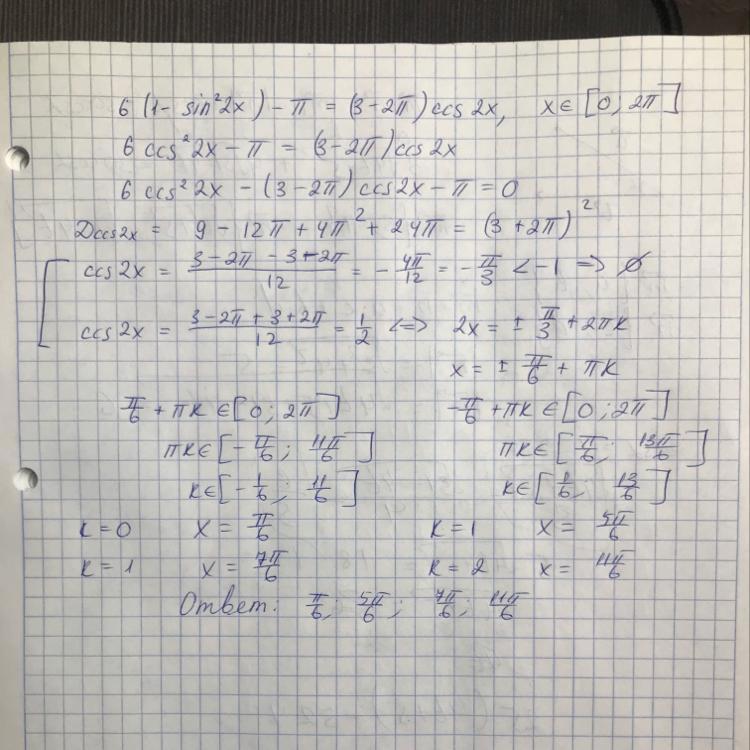 6 (1 - sin²2x) - π = (3-2π) cos 2x, x∈[0; 2π]
6 cos²2x - π = (3-2π) cos 2x
6 cos² 2x - (3-2π) cos 2x - π = 0
Dcos2x = 9 - 12π + 4π² + 24π = (3+2π)²
[ cos 2x = (3-2π-3-2π)/12 = -4π/12 = -π/3 < -1 => ∅
cos 2x = (3-2π+3+2π)/12 = 1/2 <=> 2x = ± π/3 + 2πk
x = ± π/6 + πk
π/6 + πk ∈ [0; 2π] -π/6 + πk ∈ [0; 2π]
πk ∈ [-π/6; 11π/6] πk ∈ [π/6; 13π/6]
k ∈ [-1/6; 11/6] k ∈ [1/6; 13/6]
k = 0 x = π/6 k = 1 x = 5π/6
k = 1 x = 7π/6 k = 2 x = 11π/6
Ответ: π/6; 5π/6; 7π/6; 11π/6